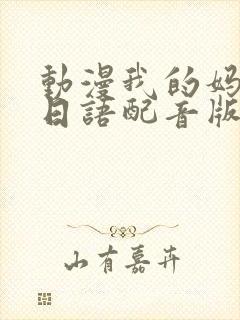 動漫我的妈
日語配音版
山有嘉卉